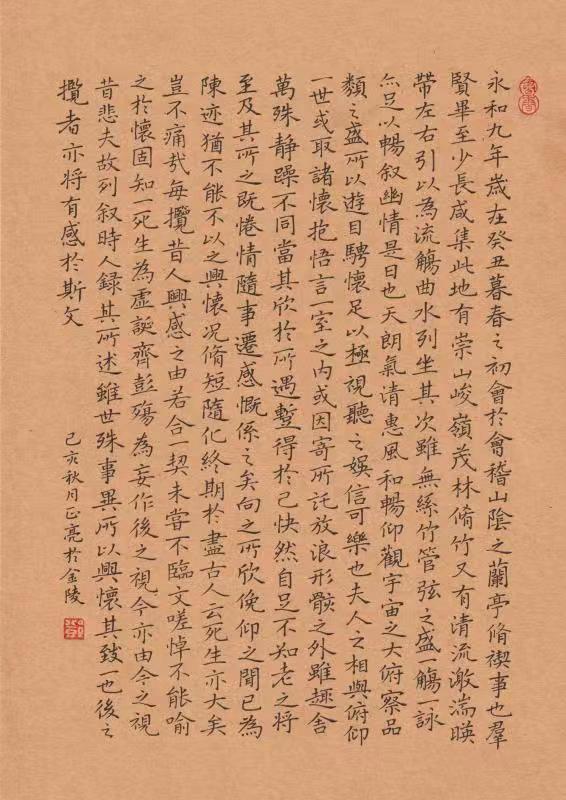 永和九年歲在癸丑暮春之初會於會稽山陰之蘭亭脩禊事也羣
賢畢至少長咸集此地有崇山峻嶺茂林脩竹又有清流激湍暎
帶左右引以為流觴曲水列坐其次雖無絲竹管弦之盛一觴一詠
亦足以暢叙幽情是日也天朗氣清惠風和暢仰觀宇宙之大俯察品
類之盛所以遊目騁懷足以極視聽之娛信可樂也夫人之相與俯仰
一世或取諸懷抱悟言一室之內或因寄所託放浪形骸之外雖趣舍
萬殊静躁不同當其欣於所遇暫得於己快然自足不知老之將
至及其所之既惓情隨事遷感慨係之矣向之所欣俛仰之閒已為
陳迹猶不能不以之興懷况脩短隨化終期於盡古人云死生亦大矣
豈不痛哉每攬昔人興感之由若合一契未嘗不臨文嗟悼不能喻
之於懷固知一死生為虛誕齊彭殤為妄作後之視今亦由今之視
昔悲夫故列叙時人録其所述雖世殊事異所以興懷其致一也後之
攬者亦將有感於斯文
己亥秋月正亮於金陵